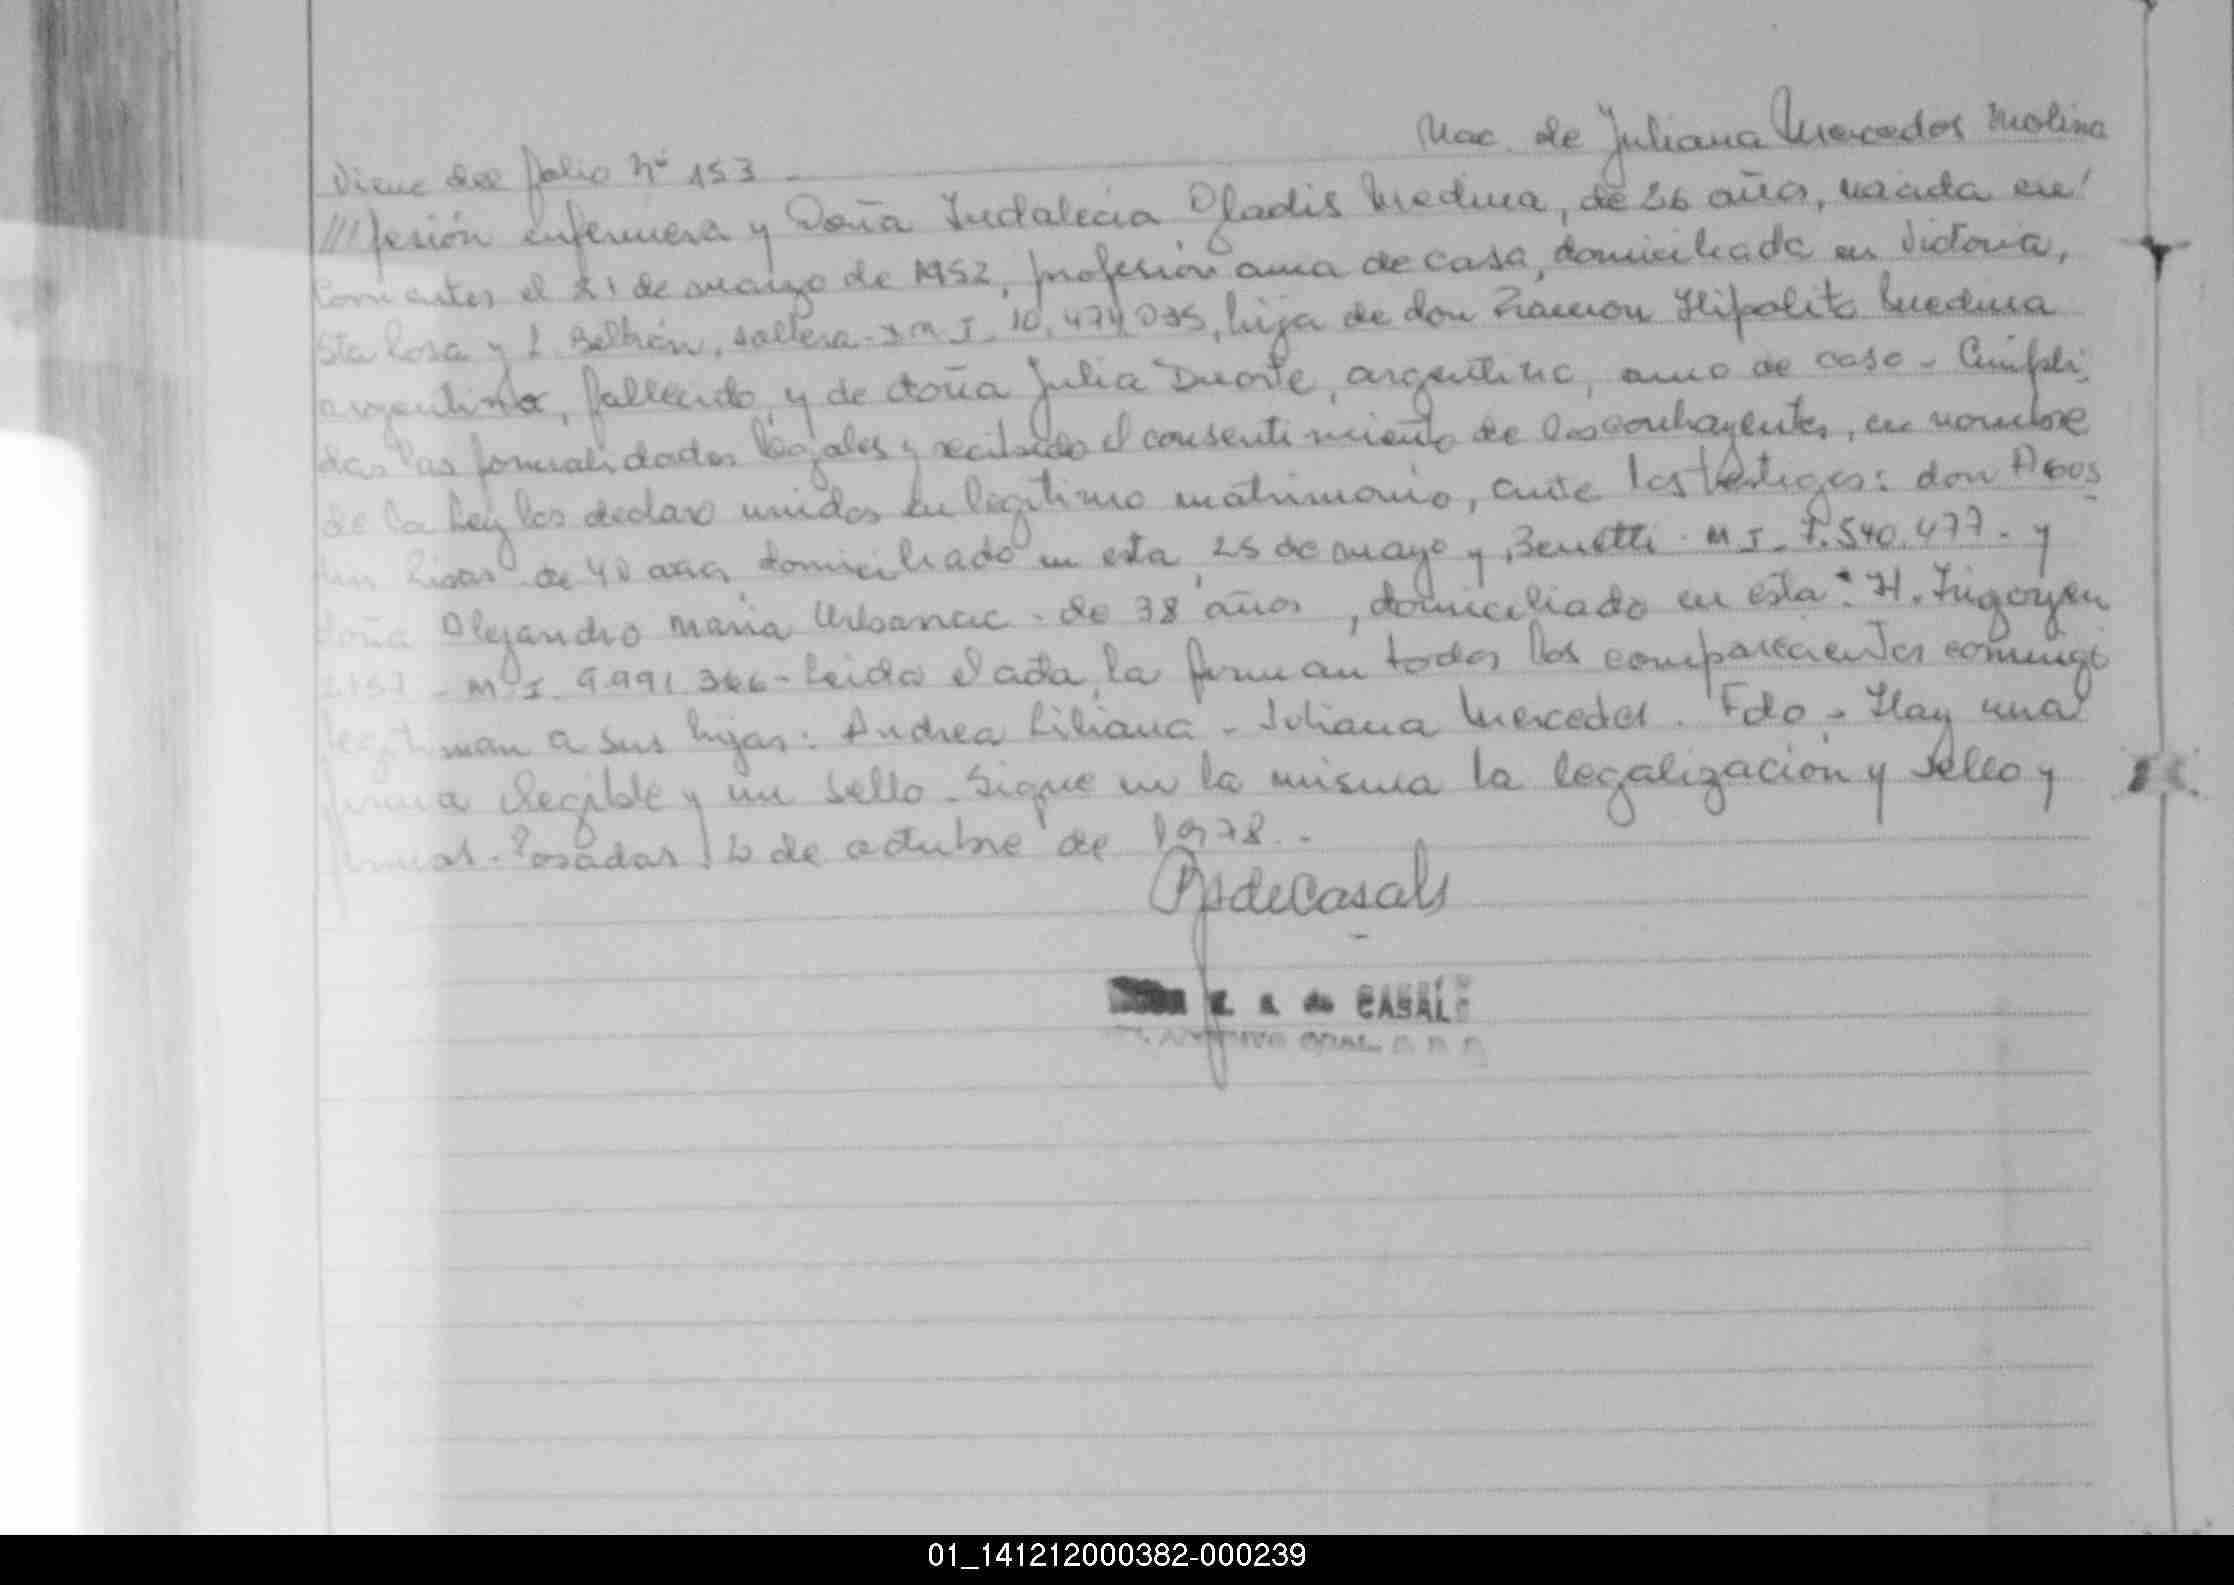 Nac. de Juliana Mercedes Molina
Viene del folio Nº 153 -
///fesión enfermera y Doña Indalecia Gladis Medina, de 26 años, nacida en
Corrientes el 21 de marzo de 1952, profesión ama de casa, domiciliada en Victoria,
Sta Rosa y L. Beltrán, soltera - D M I - 10.474.035, hija de don Ramon Hipolito Medina
argentino, fallecido, y de doña Julia Duarte, argentina, ama de casa - Cumpli
das las formalidades legales y recibido el consentimiento de los contrayentes, en nombre
de la Ley los declaro unidos en legitimo matrimonio, ante los testigos: don Agos
tin de 40 años domiciliado en esta, 25 de mayo y Benetti - M I - 7.540.477 - y
doña Alejandro Maria Urbanac - de 38 años, domiciliado en esta: H. Irigoyen
M I 9.991.366 - Leida el acta, la firman todos los comparecientes conmigo
legitiman a sus hijas: Andrea Liliana - Juliana Mercedes. Fdo - Hay una
firma ilegible y un sello - Sigue en la misma la legalización y sello y
firmas - Posadas de octubre de 1978 -
deCasals
de CASALS